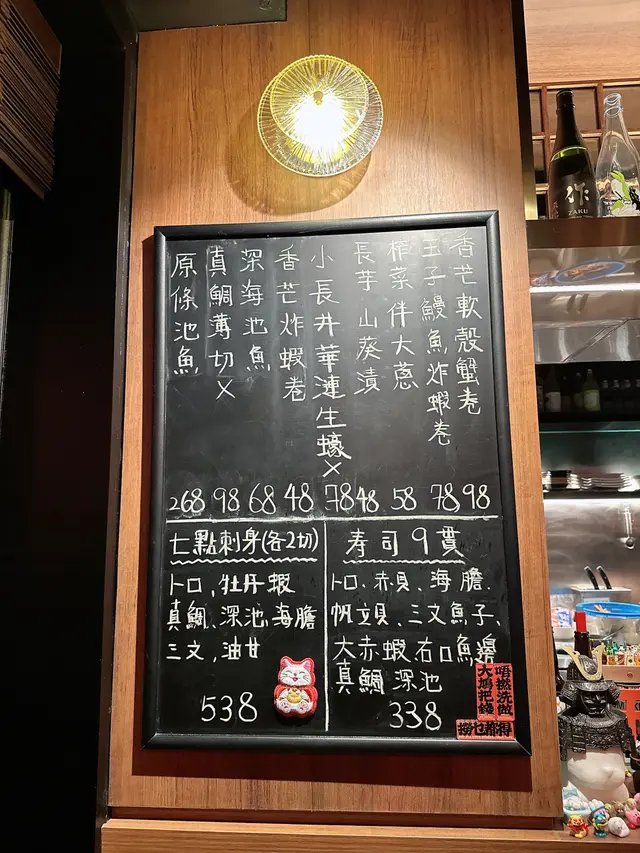 香芒軟殼蟹卷
玉子鰻魚炸蝦卷
榨菜伴大蔥
長芋山葵漬
小長井華漣生蠔X
香芒炸蝦卷
深海池魚
真鯛薄切X
原條池魚
268 98 68 48 78 48 58 78 98
七點刺身(各2切)
トロ,牡丹蝦
真鯛、深池,海膽
三文,油甘
538
寿司9貫
トロ、赤貝、海膽、
帆立貝、三文魚子、
大赤蝦、右口魚邊
真鯛 深池
338
唔撚洗做
大撚把錢
撈乜都得
作
ZAKU